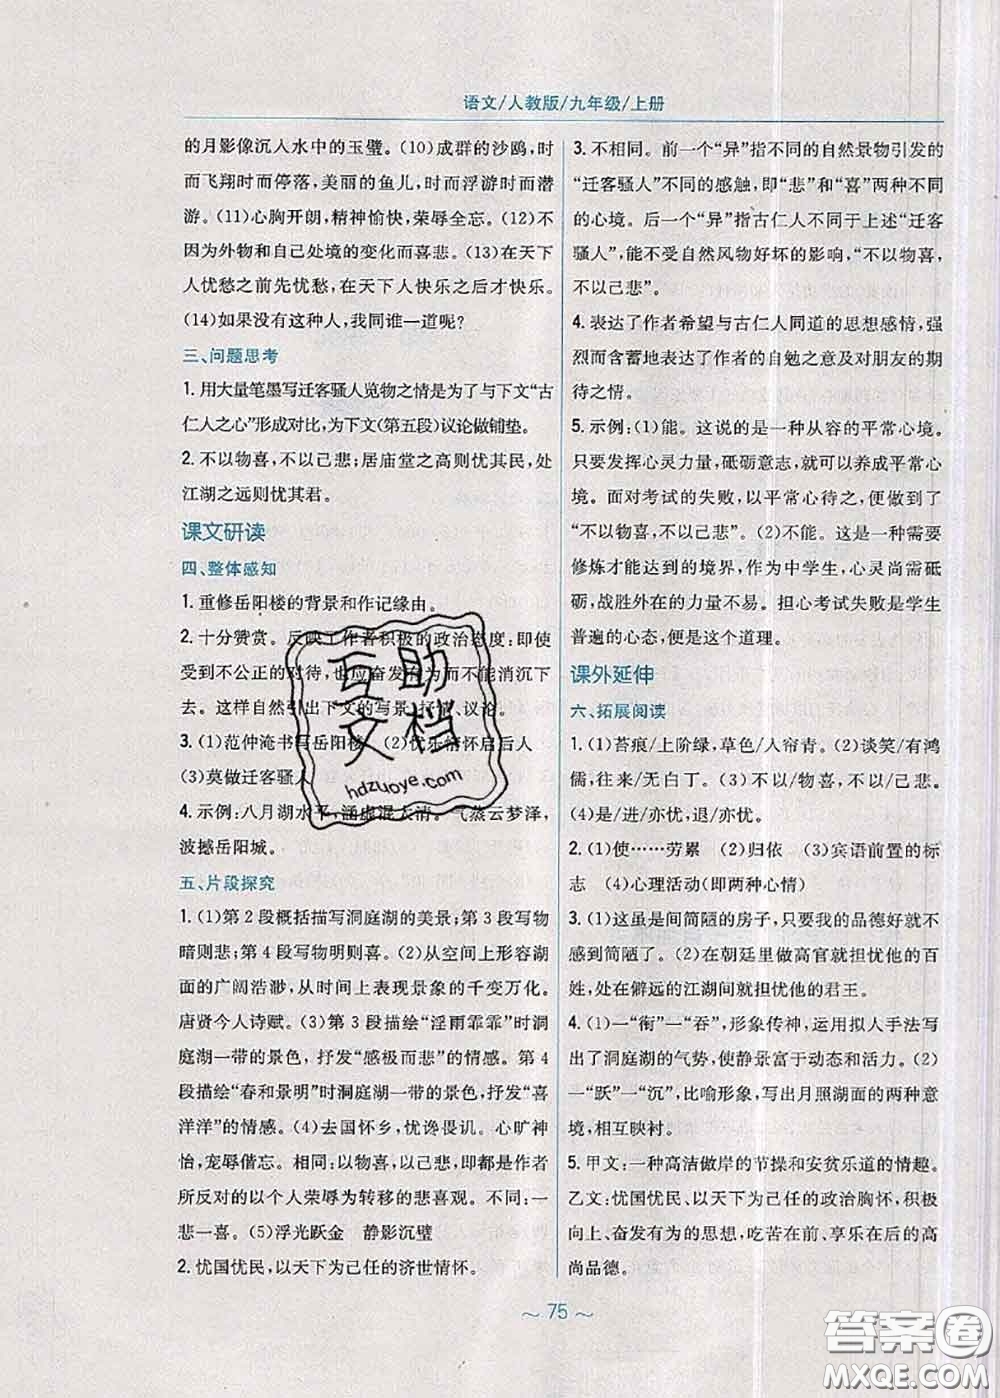 语文/人教版/九年级/上册
的月影像沉入水中的玉璧。(10)成群的沙鸥,时
而飞翔时而停落,美丽的鱼儿,时而浮游时而潜
游。(11)心胸开朗,精神愉快,荣辱全忘。(12)不
因为外物和自己处境的变化而喜悲。(13)在天下
人忧愁之前先忧愁,在天下人快乐之后才快乐。
(14)如果没有这种人,我同谁一道呢?
三、问题思考
1. 用大量笔墨写迁客骚人览物之情是为了与下文“古
仁人之心”形成对比,为下文(第五段)议论做铺垫。
2. 不以物喜,不以己悲;居庙堂之高则忧其民,处
江湖之远则忧其君。
课文研读
四、整体感知
1. 重修岳阳楼的背景和作记缘由。
2. 十分赞赏。反映了作者积极的政治态度:即使
受到不公正的对待,也应奋发有为而不能消沉下
去。这样自然引出下文的写景、抒情、议论。
3. (1)范仲淹书写岳阳楼 (2)忧乐情怀启后人
(3)莫做迁客骚人
4. 示例:八月湖水平,涵虚混太清。气蒸云梦泽,
波撼岳阳城。
五、片段探究
1. (1)第 2 段概括描写洞庭湖的美景;第 3 段写物
暗则悲;第 4 段写物明则喜。(2)从空间上形容湖
面的广阔浩渺,从时间上表现景象的千变万化。
唐贤今人诗赋。(3)第 3 段描绘“淫雨霏霏”时洞
庭湖一带的景色,抒发“感极而悲”的情感。第 4
段描绘“春和景明”时洞庭湖一带的景色,抒发“喜
洋洋”的情感。(4)去国怀乡,忧谗畏讥。心旷神
怡,宠辱偕忘。相同:以物喜,以己悲,即都是作者
所反对的以个人荣辱为转移的悲喜观。不同:一
悲一喜。(5)浮光跃金 静影沉璧
2. 忧国忧民,以天下为己任的济世情怀。
3. 不相同。前一个“异”指不同的自然景物引发的
“迁客骚人”不同的感触,即“悲”和“喜”两种不同
的心境。后一个“异”指古仁人不同于上述“迁客
骚人”,能不受自然风物好坏的影响,“不以物喜,
不以己悲”。
4. 表达了作者希望与古仁人同道的思想感情,强
烈而含蓄地表达了作者的自勉之意及对朋友的期
待之情。
5. 示例:(1)能。这说的是一种从容的平常心境。
只要发挥心灵力量,砥砺意志,就可以养成平常心
境。面对考试的失败,以平常心待之,便做到了
“不以物喜,不以己悲”。(2)不能。这是一种需要
修炼才能达到的境界,作为中学生,心灵尚需砥
砺,战胜外在的力量不易。担心考试失败是学生
普遍的心态,便是这个道理。
课外延伸
六、拓展阅读
1. (1)苔痕/上阶绿,草色/入帘青。(2)谈笑/有鸿
儒,往来/无白丁。(3)不以/物喜,不以/己悲。
(4)是/进/亦忧,退/亦忧。
2. (1)使……劳累 (2)归依 (3)宾语前置的标
志 (4)心理活动(即两种心情)
3. (1)这虽是间简陋的房子,只要我的品德好就不
感到简陋了。(2)在朝廷里做高官就担忧他的百
姓,处在僻远的江湖间就担忧他的君王。
4. (1)一“衔”一“吞”,形象传神,运用拟人手法写
出了洞庭湖的气势,使静景富于动态和活力。(2)
一“跃”一“沉”,比喻形象,写出月照湖面的两种意
境,相互映衬。
5. 甲文:一种高洁傲岸的节操和安贫乐道的情趣。
乙文:忧国忧民、以天下为己任的政治胸怀,积极
向上、奋发有为的思想,吃苦在前、享乐在后的高
尚品德。
～ 75 ～
互助
文档
hdzuoye.com
答案圈
MXQE.COM